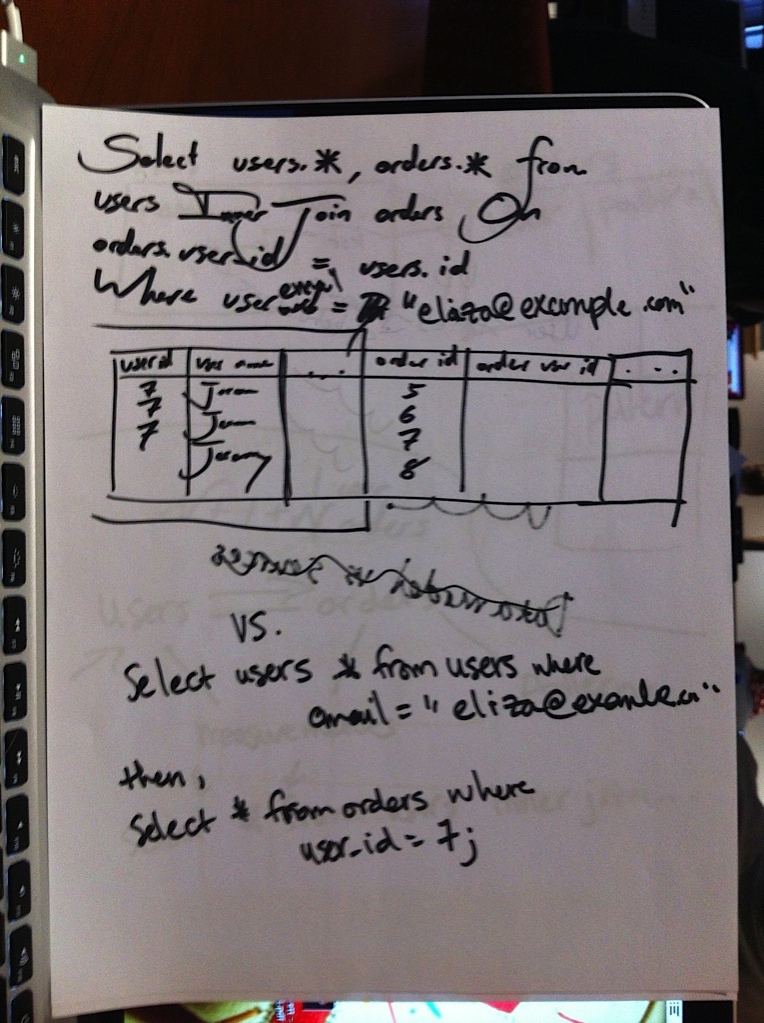 Select users.*, orders.* from
users Inner Join orders On
orders.user_id = users.id
Where user email = "eliza@example.com"
user id | user name | ... | order id | order user id | ...
7 5
7 6
7 7
8
vs.
Select users * from users where
email = "eliza@
then,
Select * from orders where
user_id = 7;